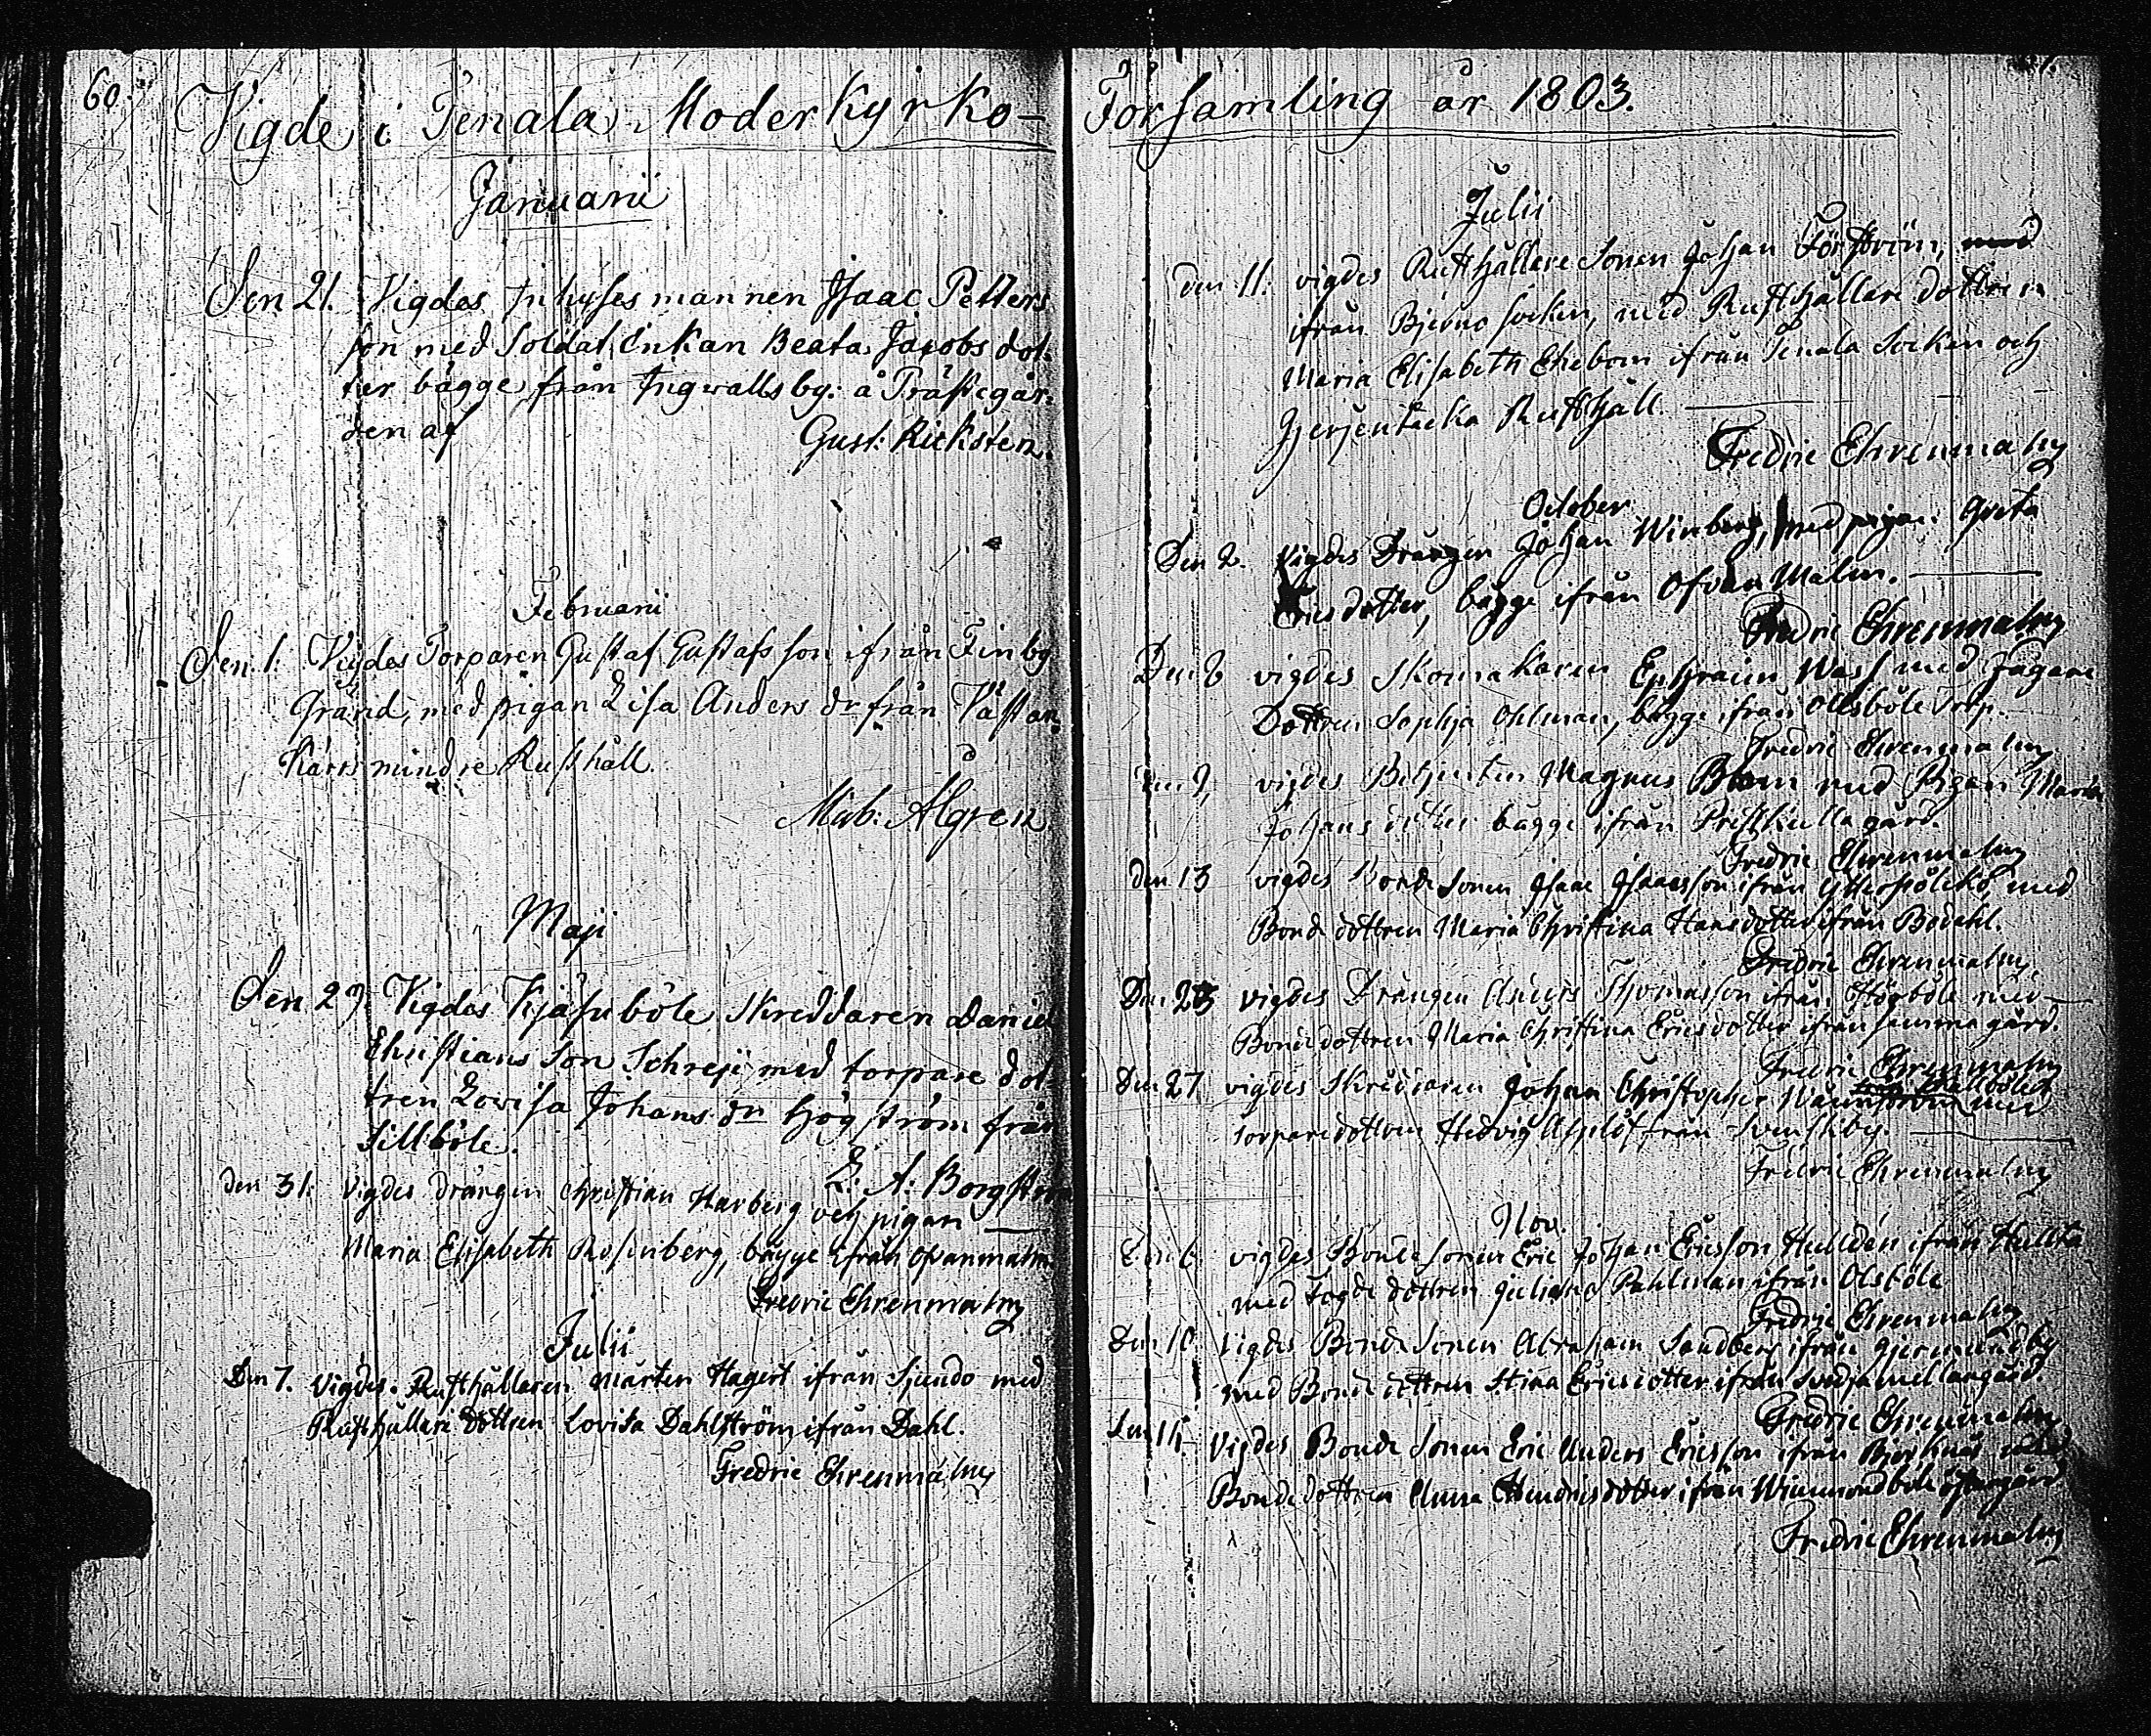 60.
Vigde i Tenala Moderkyrko-
Januarii
Den 21. Vigdes Inhyses mannen Isaac Petters
son med Soldat Enkan Beata Jacobs dot-
ter bägge från Ingwallsby: å Prästegår-
den af
Gust: Ricksten.
Februarii
Den 1: Vigdes Torparen Gustaf Gustafsson ifrån Finby
Gränd, med pigan Lisa Anders dr från Västan
Kärrs mindre Rusthåll.
Algren
Maji
Den 29. Vigdes Skreddaren Daniel
Christians Son med torpare dot-
tren Lovisa Johans dr Högström från
Sillböle.
L: A: Borgström
den 31: Vigdes drängen Christian Harberg och pigan
Maria Elisabeth Rosenberg, bägge ifrån ofvanmalm
Fredric Ehrenmalm
Julii
Den 7. Vigdes Rusthållaren Mårten Hagert ifrån Sjundo med
Rusthållare dottren Lovisa Dahlström ifrån Dahl.
Fredric Ehrenmalm
Församling år 1803.
Julii
den 11: vigdes Rusthållare Sonen Johan Förström, med
ifrån Bjerno socken, med Rusthållare dottren
Maria Elisabeth Ekebom ifrån Tenala Socken och
Rusthåll.
Fredric Ehrenmalm
October
Den 2. Vigdes Drängen Johan Winberg, med pigan Greta
Ericsdotter, bägge ifrån Ofvan Malm.
Fredric Ehrenmalm
Den 8 vigdes Skomakaren Ephraim Wass med Jägare
Dottren Sophia Ohlman, bägge ifrån Olsböle Torp.
Fredric Ehrenmalm
den 9, vigdes Betjenten Magnus Blom med Pigan Maria
Johans dotter bägge ifrån Prestkulla gård.
Fredric Ehrenmalm
den 13 vigdes Bonde Sonen Isaac Isaacsson ifrån med
Bonde dottren Maria Christina Hansdotter ifrån Bodahl.
Fredric Ehrenmalm
Den 23 vigdes Drängen Anders Thomasson ifrån Högböle med
Bonde dottren Maria Christina Ericsdotter ifrån samma gård.
Fredric Ehrenmalm
Den 27 vigdes Skreddaren Johan Christopher med
torpare dottren Hedvig Asplöf från Svenskby.
Fredric Ehrenmalm
Nov.
Den 6 vigdes Bonde sonen Eric Johan Ericsson Hulldén ifrån Hullta
med Fogde dottren Juliana Pahlman ifrån Olsböle
Fredric Ehrenmalm
Den 10 vigdes Bonde Sonen Abraham Sandberg ifrån Gjermundby
med Bonde dottren Stina Ericsdotter ifrån Svedja mellangård.
Fredric Ehrenmalm
Den Vigdes Bonde Sonen Eric Anders Ericsson ifrån Björknäs med
Bonde dottren Anna Hendricsdotter ifrån
Fredric Ehrenmalm